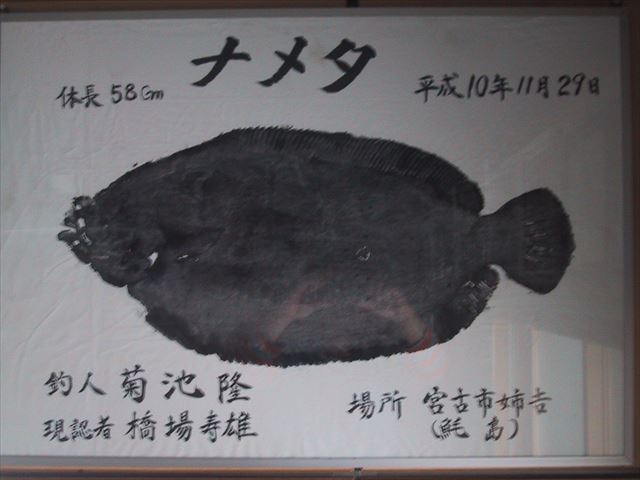 ナメタ
体長 58Cm
平成10年11月29日
釣人 菊池 隆
現認者 橋場寿雄
場所 宮古市姉吉
(魹島)